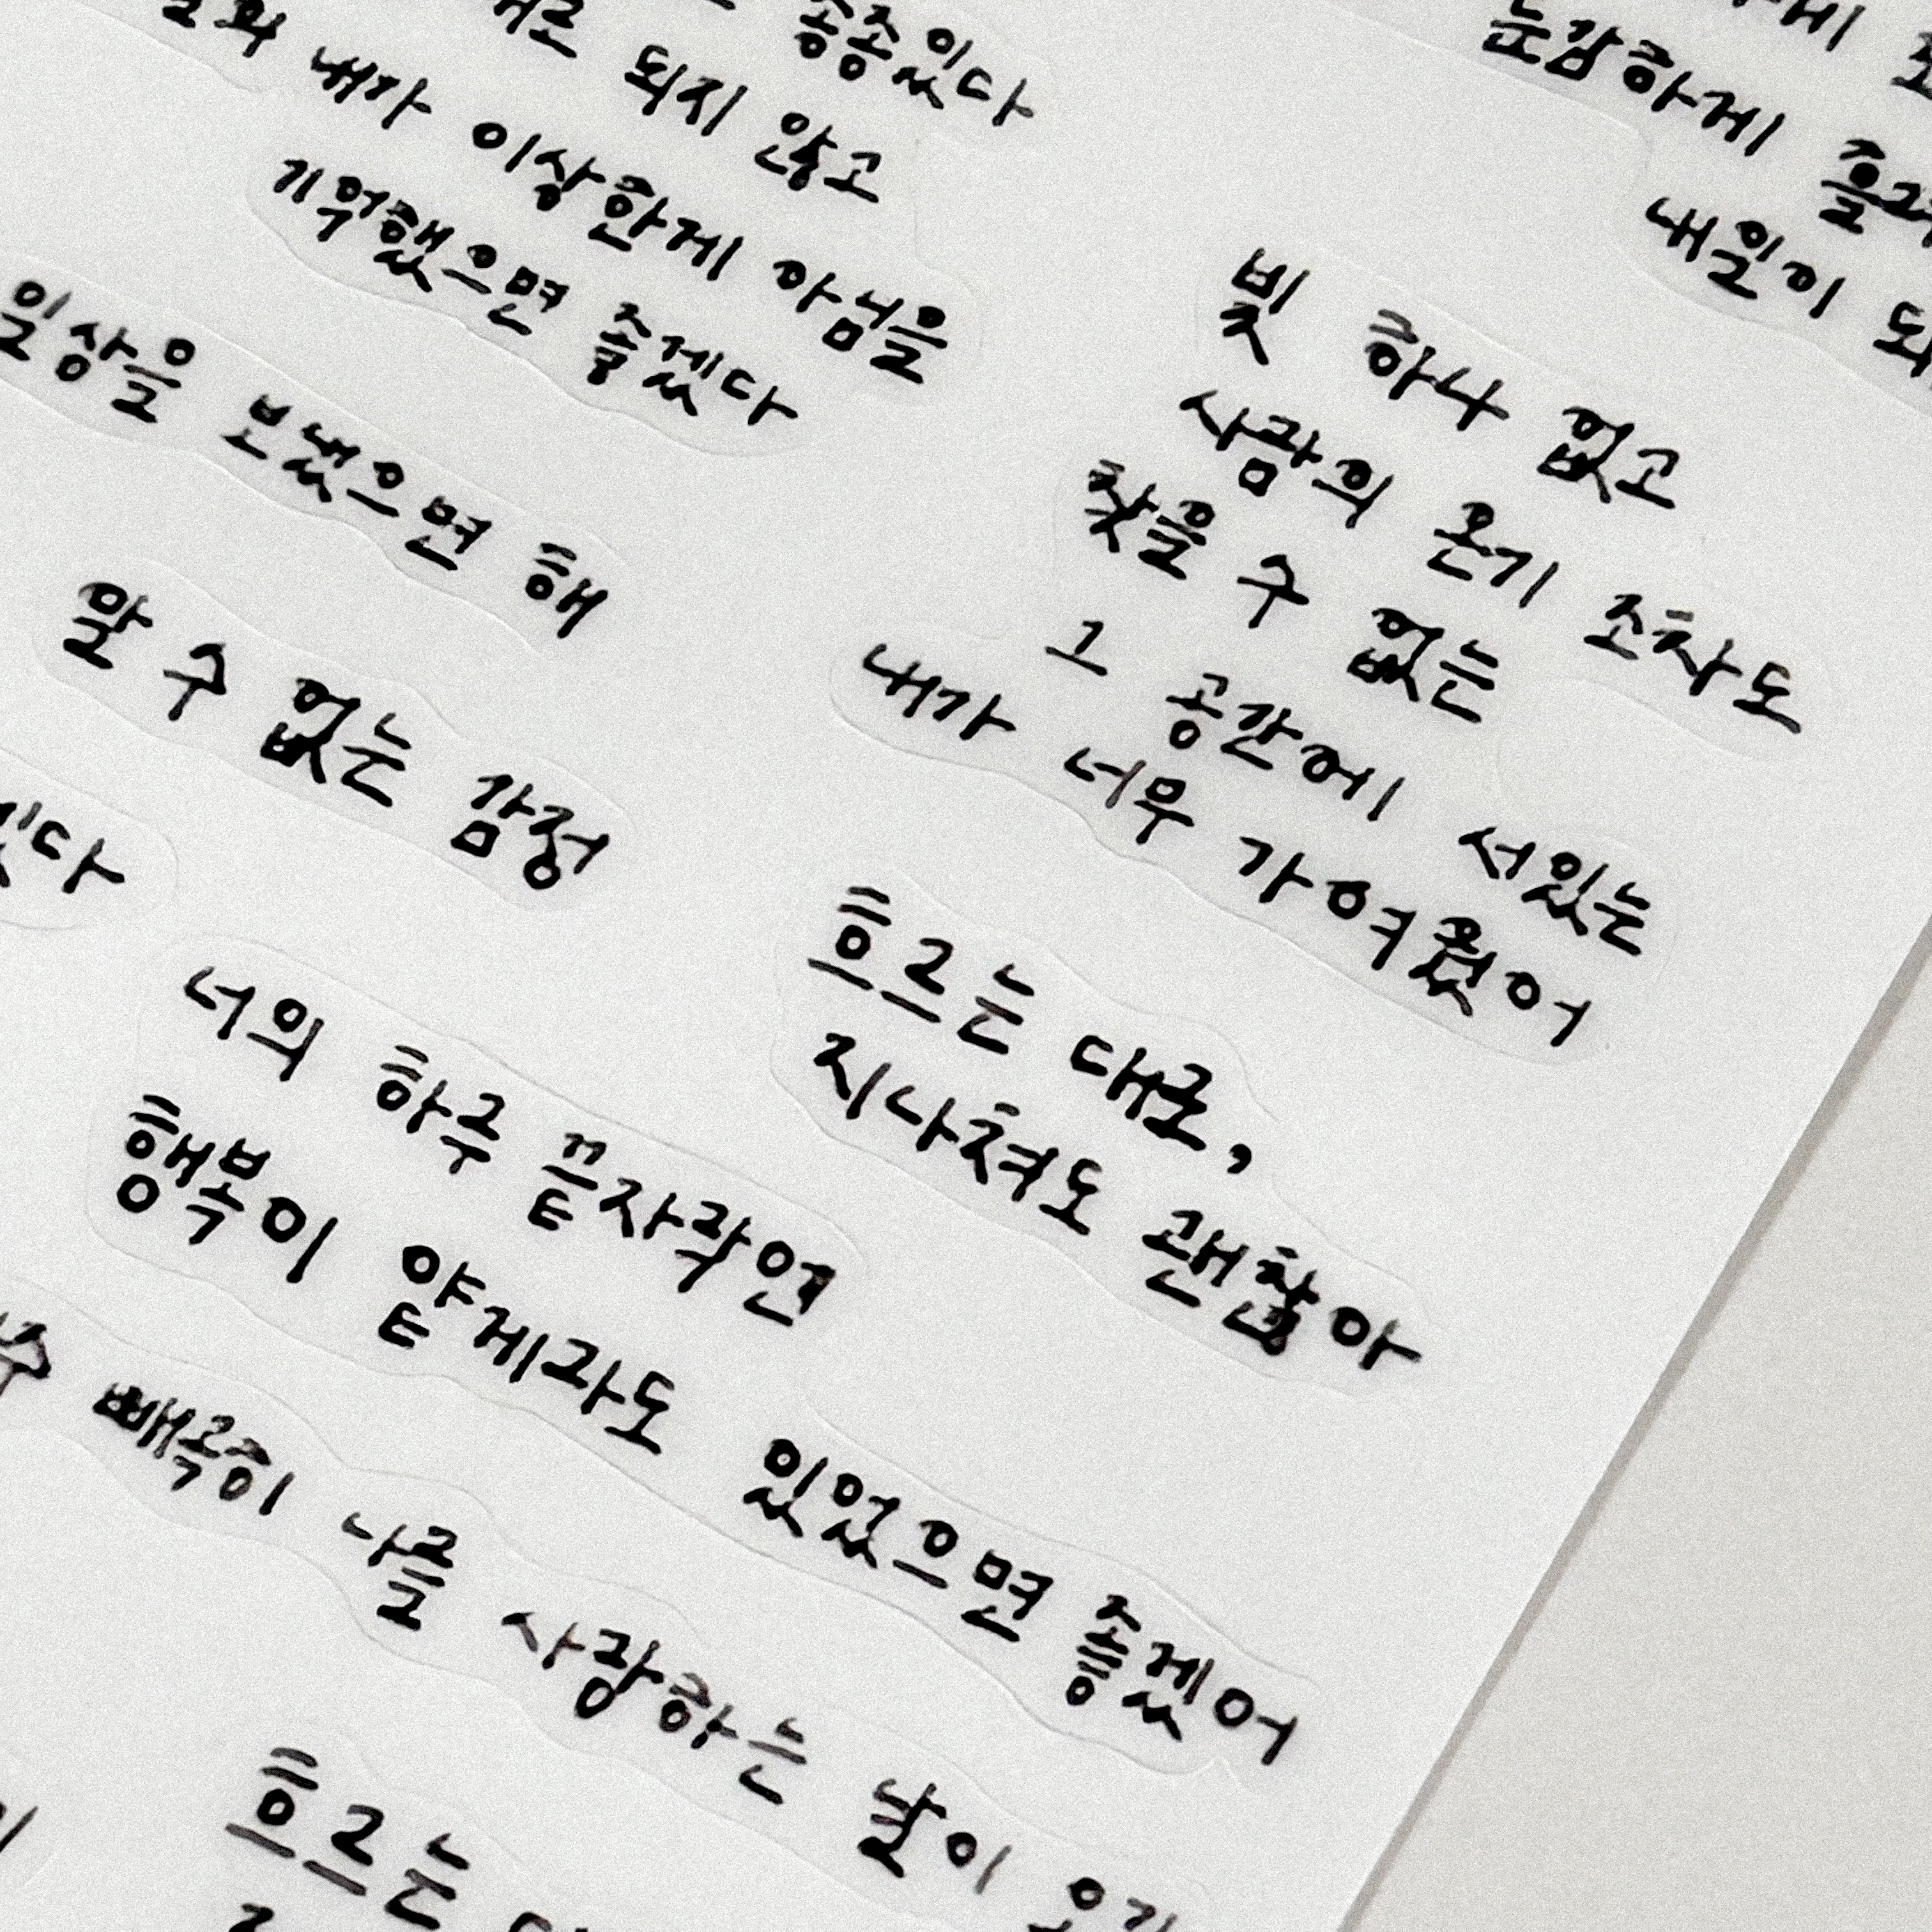 종종있다
되지 않고
내가 이상한게 아님을
기억했으면 좋겠다
일상을 보냈으면 해
알 수 없는 감정
너의 하루 끝자락엔
행복이 얕게라도 있었으면 좋겠어
빼곡히 나를 사랑하는 날이
흐르는
둔감하게
내일이
빛 하나 없고
사람의 온기 조차도
찾을 수 없는
그 공간에 서있는
내가 너무 가여웠어
흐르는 대로,
지나쳐도 괜찮아